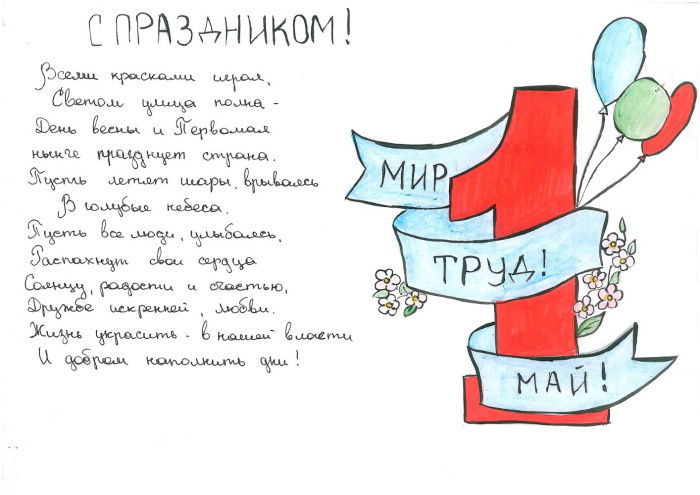 С ПРАЗДНИКОМ!
Всеми красками играя,
Светом улица полна -
День весны и Первомая
нынче празднует страна.
Пусть летят шары, врываясь
В голубые небеса.
Пусть все люди, улыбаясь,
Распахнут свои сердца
Солнцу, радости и счастью,
Дружбе искренней, любви.
Жизнь украсить - в нашей власти
И добром наполнить дни!
МИР
1
ТРУД!
МАЙ!